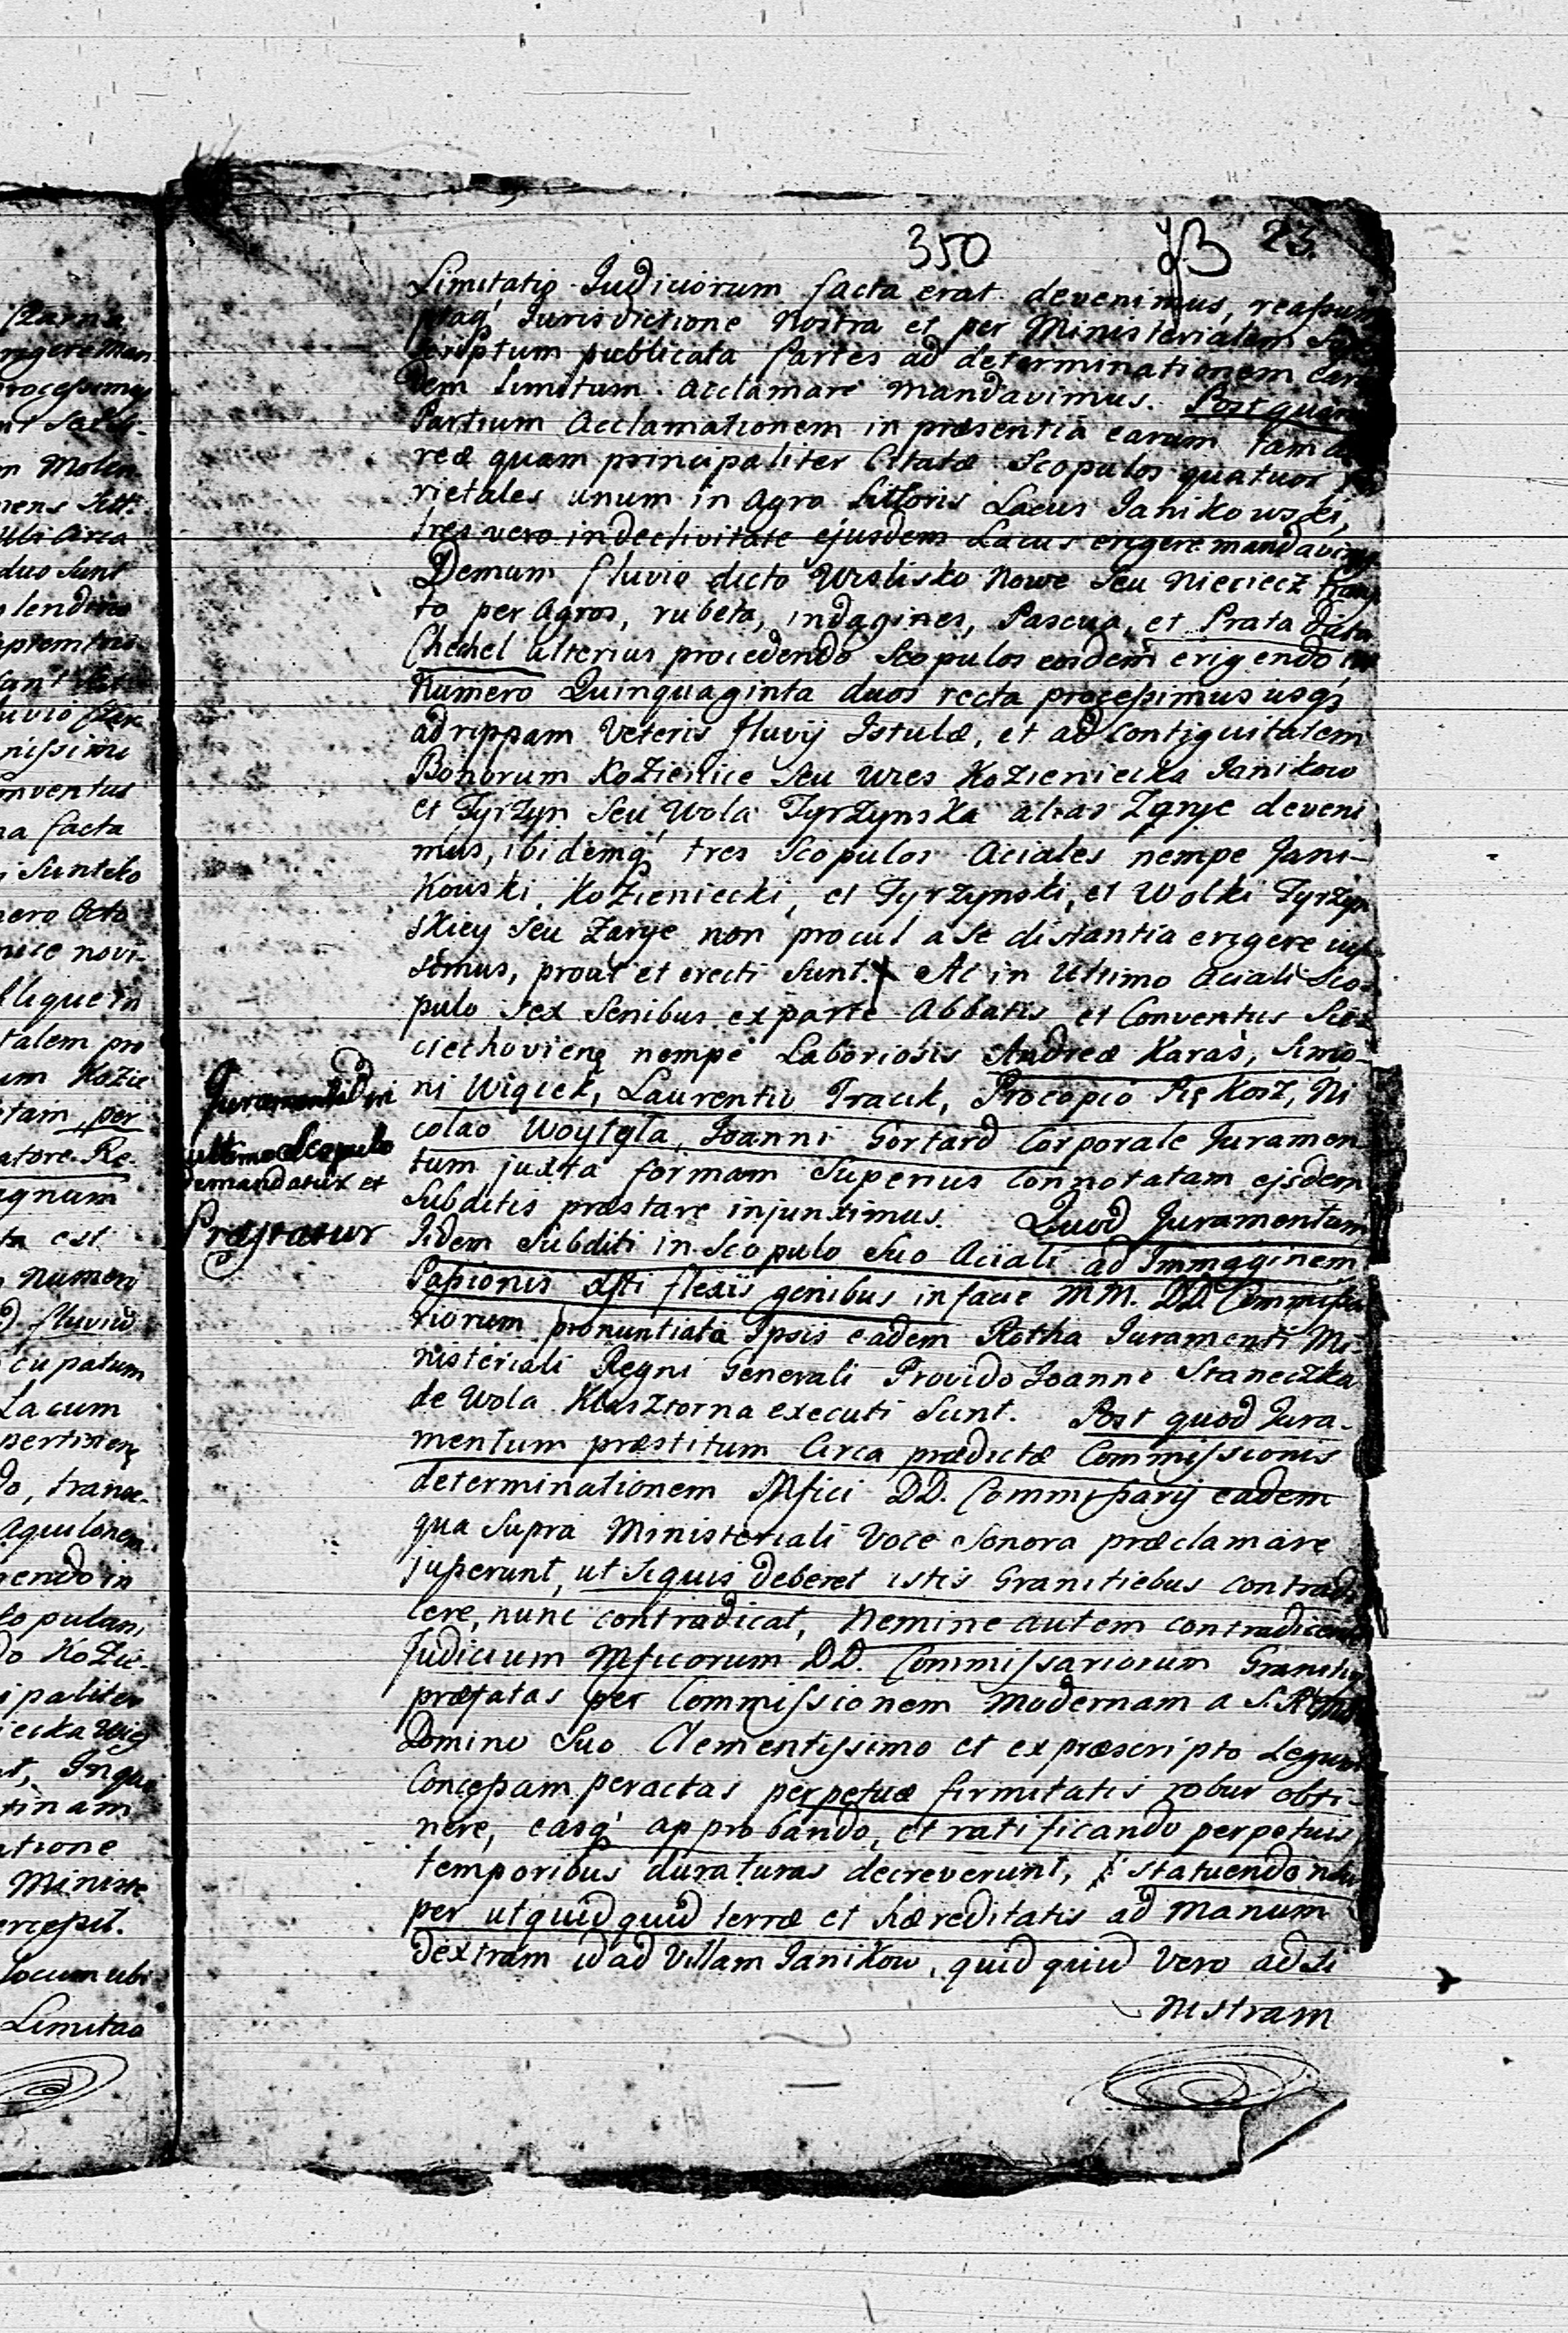 350 23.
Limitatio Judiciorum facta erat devenimus, reaßum
ptaq́ Jurisdictione Nostra et per Ministerialem
scriptum publicata Partes ad determinationem earun
dem limitum acclamare mandavimus. Post quam
Partium Acclamationem in præsentia earum tam
reæ quam principaliter Citatæ Scopulos quatuor
rietales unum in agro littoris Lacus Janikowski,
tres vero in declivitate ejusdem Lacus erigere mandavimus
Demum fluvio dicto Wislisko Nowe Seu Nieciecz
to per Agros, rubeta, indagines, Pascua, et Prata
Chechel ulterius procedendo Scopulos eosdem erigendo,
Numero Quinquaginta duos recta proceßimus usq́
ad rippam Veteris fluvij Istulæ, et ad Contiguitatem
Bonorum Kozienice Seu Wies Kozieniecka Janikow
et Tyrzyn Seu Wola Tyrzynska alias Zarye deveni
mus, ibidemq́ tres Scopulos Aciales nempe Jani-
Kowski, Kozieniecki, et Tyrzynski, et Wolki Tyrzyn
skiey Seu Zarye non procul a Se distantia erigere juß
simus, prout et erecti Sunt. Ac in Ultimo Aciali Sco-
pulo Sex Senibus ex parte Abbatis et Conventus Sie-
ciechovien: nempe Laboriosis Andreæ Karas, Simo-
ni Wiącek, Laurentio Tracik, Procopio Pękosz, Ni
colao Woytyla, Joanni Gortard Corporale Juramen
tum juxta formam Superius Connotatam ejsdem
Subditis præstare injunximus. Quod Juramentum
Iidem Subditi in Scopulo Suo Aciali ad Immaginem
Paßionis Xsti flexis genibus in facie MM. DD. Commißa
riorum pronuntiata Ipsis eadem Rotha Juramenti Mi-
nisteriali Regni Generali Provido Joanne Staneczka
de Wola Klasztorna executi Sunt. Post quod Jura-
mentum præstitum Circa prædictæ Commißionis
determinationem Mfici DD. Commißarij eadem
qua Supra Ministeriali Voce Sonora præclamare
jußerunt, ut Siquis deberet istis Granitiebus contradi
cere, nunc contradicat, Nemine autem contradicente
Judicium Mficorum DD. Commißariorum Granities
præfatas per Commißionem Modernam a S. R.
Domino Suo Clementißimo et ex præscripto Legum
Conceßam peractas perpetuæ firmitatis robur obti-
nere, easq́ approbando, et ratificando perpetuis
temporibus duraturas decreverunt, Statuendo
per ut quidquid terræ et hæreditatis ad Manum
dextram id ad Villam Janikow, quidquid Vero ad Si
nistram
Juramentum in
ultimo Scopulo
demandatur et
Præstatur